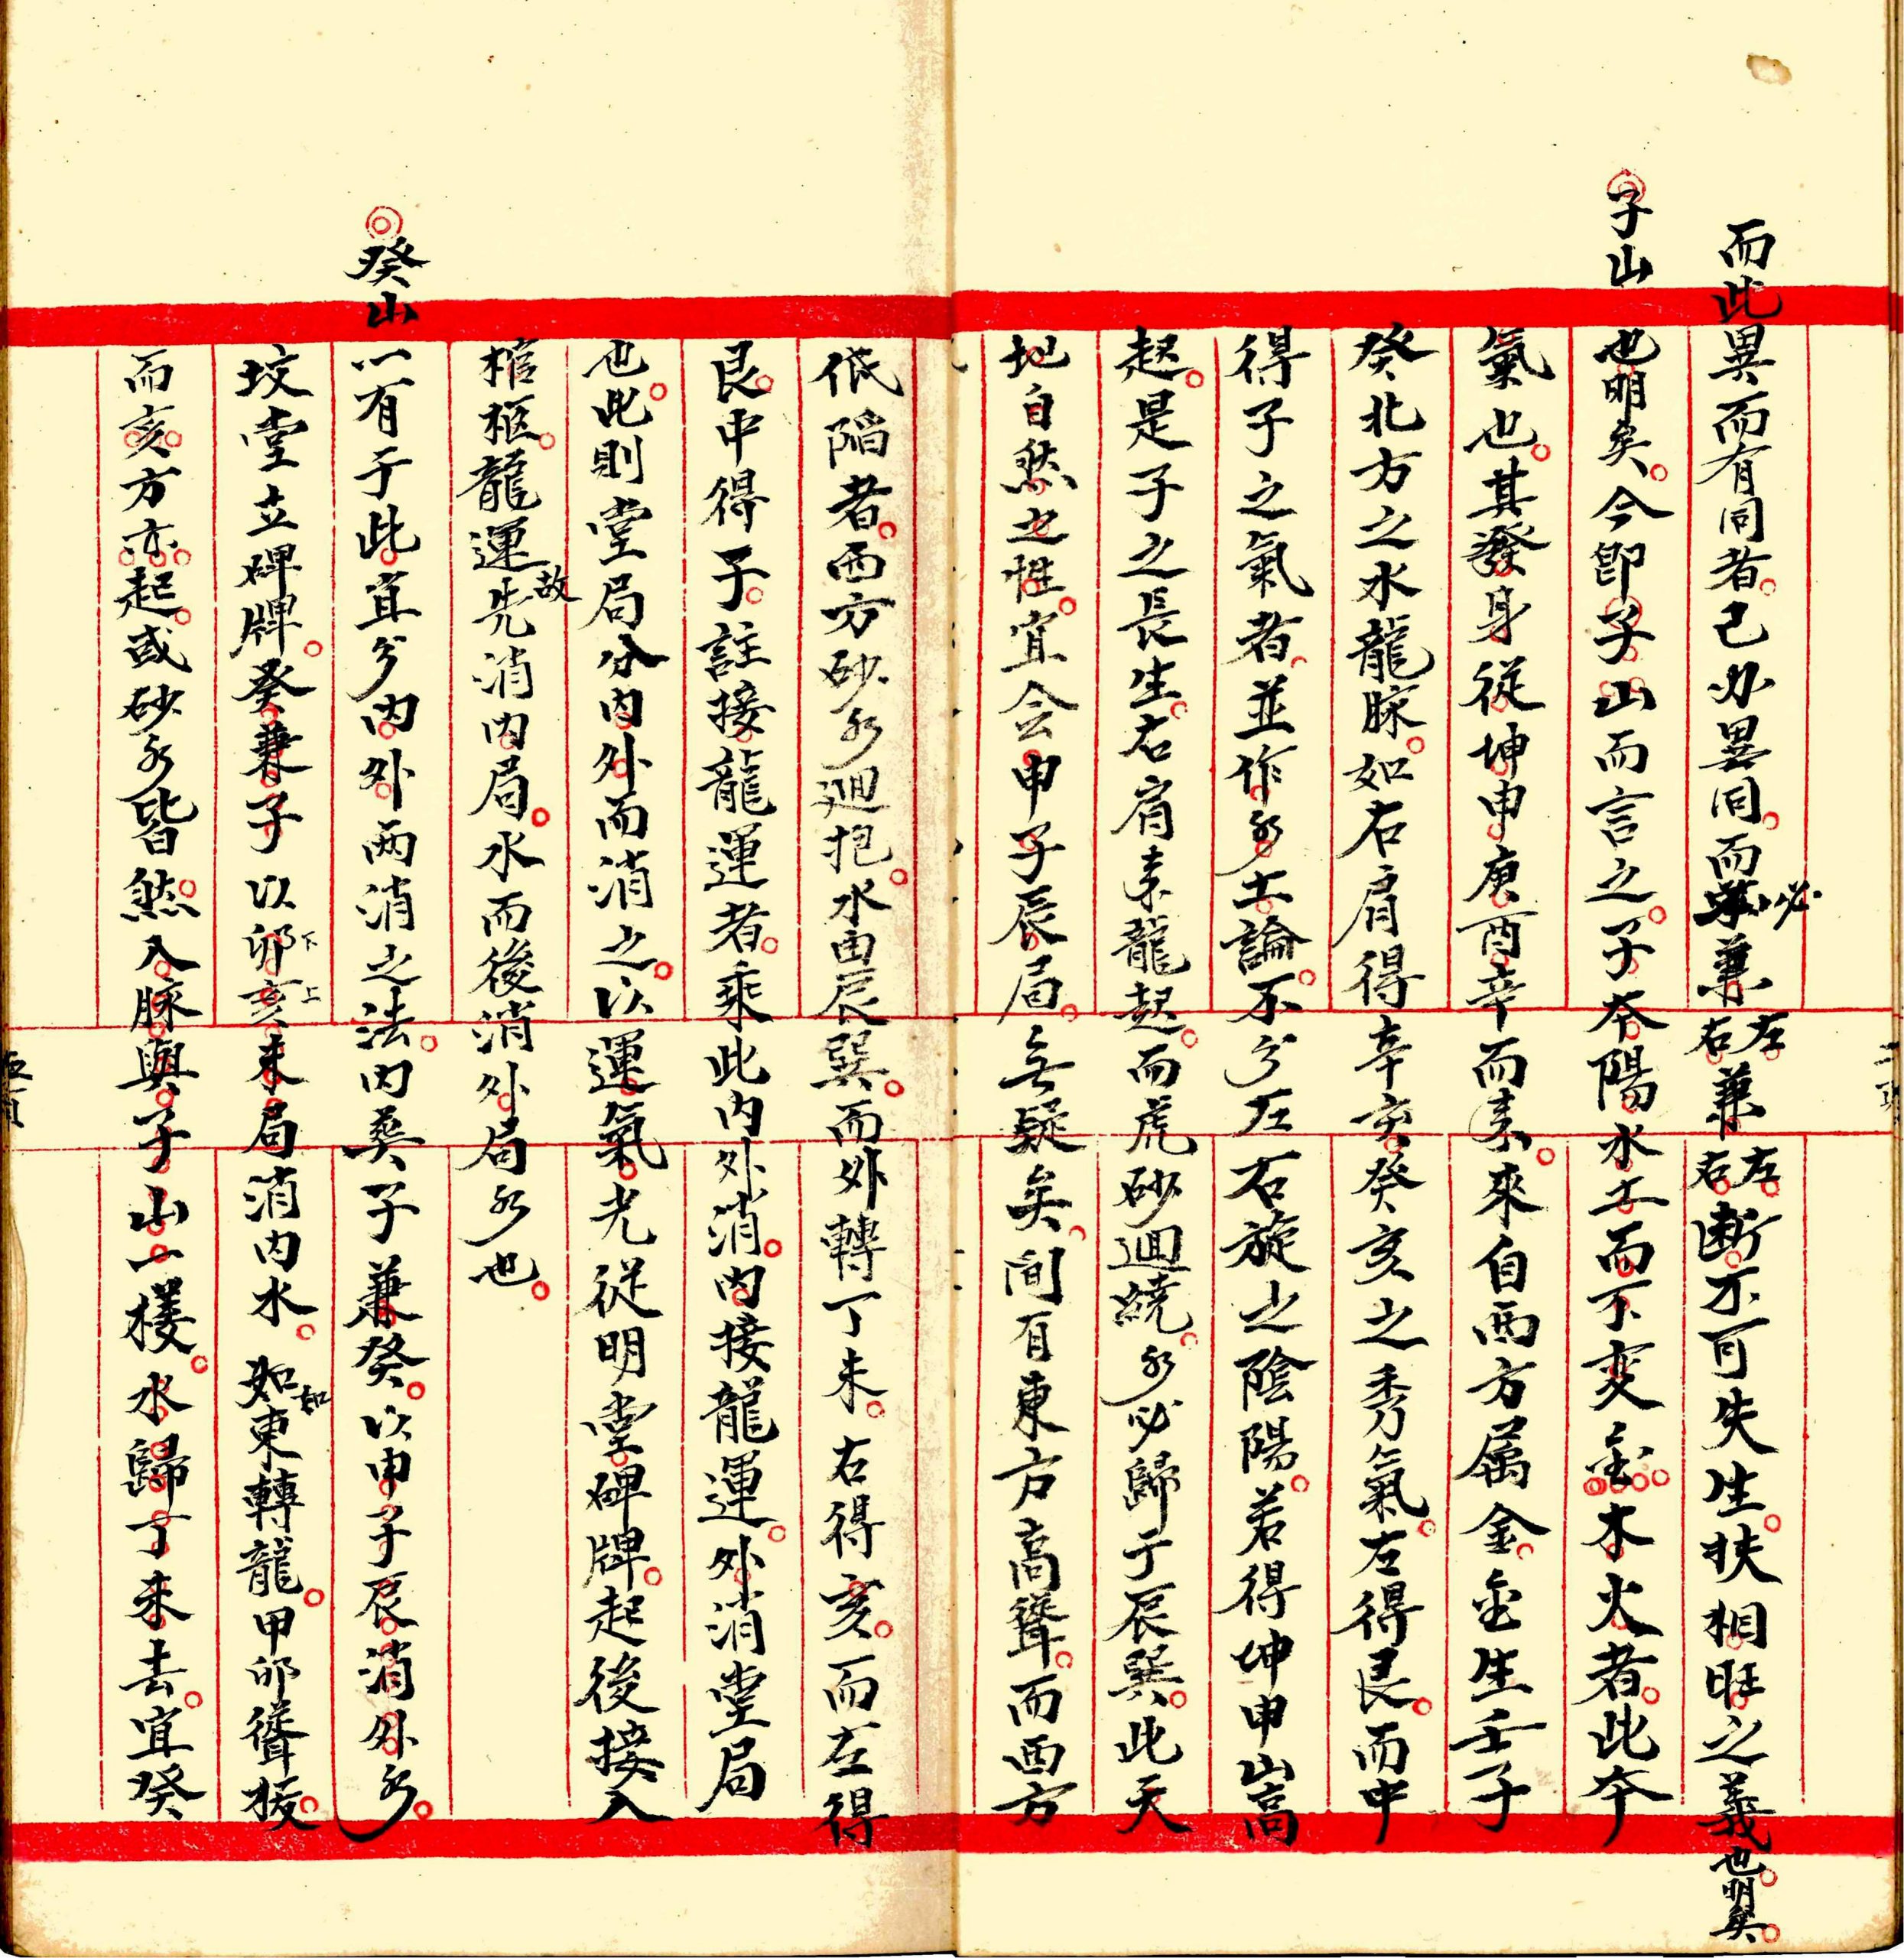 而此異而有同者己办異同而必兼左右兼左右断不可失生扶相旺之義也明矣
子山
也明矣今即子山而言之子夲陽水土而不変金木火者此夲
氣也其發身從坤申庚酉辛而來來自西方属金金生壬子
癸北方之水龍脉如右肩得辛亥癸亥之秀氣左得艮而中
得子之氣者並作水土論不分左右旋之陰陽若得坤申山高
起是子之長生右肩來龍起而虎砂迴繞水必歸于辰巽此天
地自然之性宜会申子辰局無疑矣间有東方高聳而西方
低陷者西方砂水廻抱水由辰巽而外轉丁未右得亥而左得
艮中得子註接龍運者乘此内外消内接龍運外消堂局
也此則堂局分内外而消之以運氣光從明堂碑牌起後接入
棺柩龍運故先消内局水而後消外局水也
癸山
一有于此宜分内外两消之法内葬子兼癸以申子辰消外水
坟堂立碑牌癸兼子以卯下亥上未局消内水如東轉龍甲卯聳拔
而亥方亦起或砂水皆然入脉與子山一樣水歸丁未去宜癸